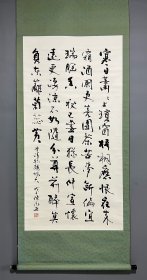 寒日蕭々上瑣窗梧桐應恨夜來
霜酒闌更喜團茶苦夢斷偏宜
瑞腦香秋已盡日猶長仲宣懷
遠更淒涼不如隨分尊前醉莫
負東籬菊蕊黃